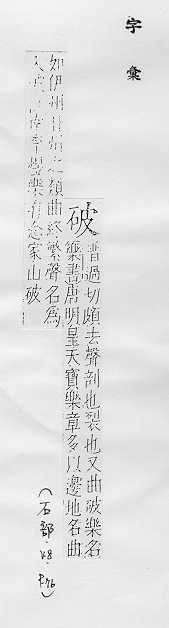 字彙
破
普過切頗去聲剖也裂也又曲破樂名
樂書唐明皇天寶樂章多以邊地名曲
如伊州甘州之類曲終繁聲名為
入破 樂有念家山破
(石部.48.P.76)